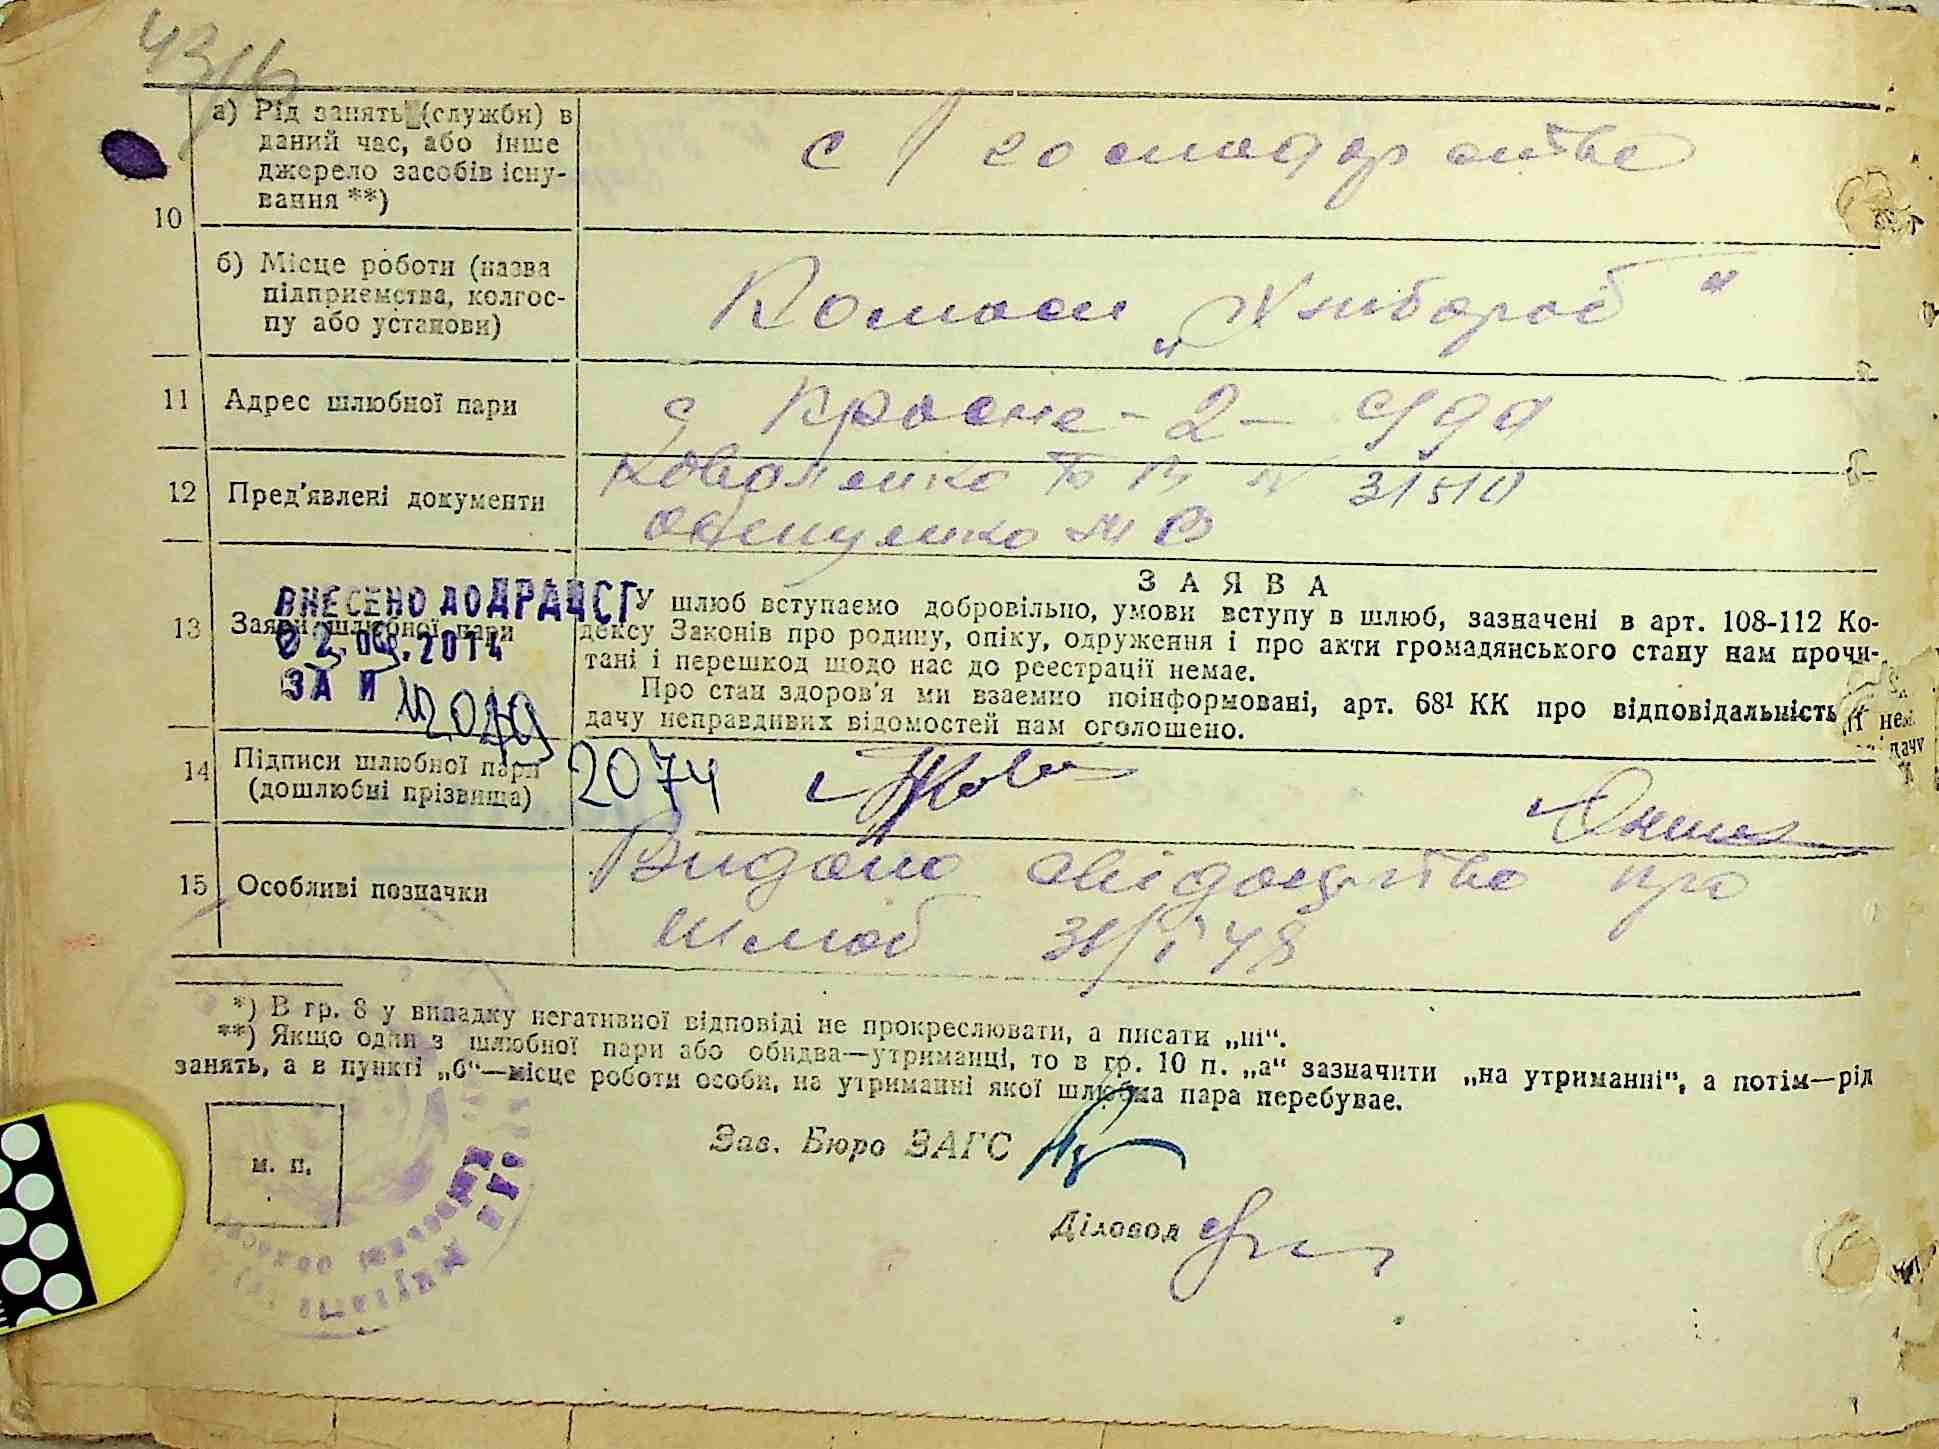 43/6
10 а) Рід занять (служби) в
даний час, або інше
джерело засобів існу-
вання **)
с/господарство
б) Місце роботи (назва
підприємства, колгос-
пу або установи)
„Хлібороб"
11 Адрес шлюбної пари
с Красне-2-
12 Пред'явлені документи
Коваленко № 31510
13 Заяви шлюбної пари
ВНЕСЕНО ДО ДРАЦСГ
2014
ЗА №
З А Я В А
У шлюб вступаємо добровільно, умови вступу в шлюб, зазначені в арт. 108-112 Ко-
дексу Законів про родину, опіку, одруження і про акти громадянського стану нам прочи-
тані і перешкод щодо нас до реєстрації немає.
Про стан здоров'я ми взаємно поінформовані, арт. 68¹ КК про відповідальність
дачу неправдивих відомостей нам оголошено.
14 Підписи шлюбної пари
(дошлюбні прізвища)
2074
15 Особливі позначки
Видано свідоцтво про
шлюб
*) В гр. 8 у випадку негативної відповіді не прокреслювати, а писати „ні“.
**) Якщо один з шлюбної пари або обидва—утриманці, то в гр. 10 п. „а“ зазначити „на утриманні“, а потім—рід
занять, а в пункті „б“—місце роботи особи, на утриманні якої шлюбна пара перебуває.
м. п.
Зав. Бюро ЗАГС
Діловод